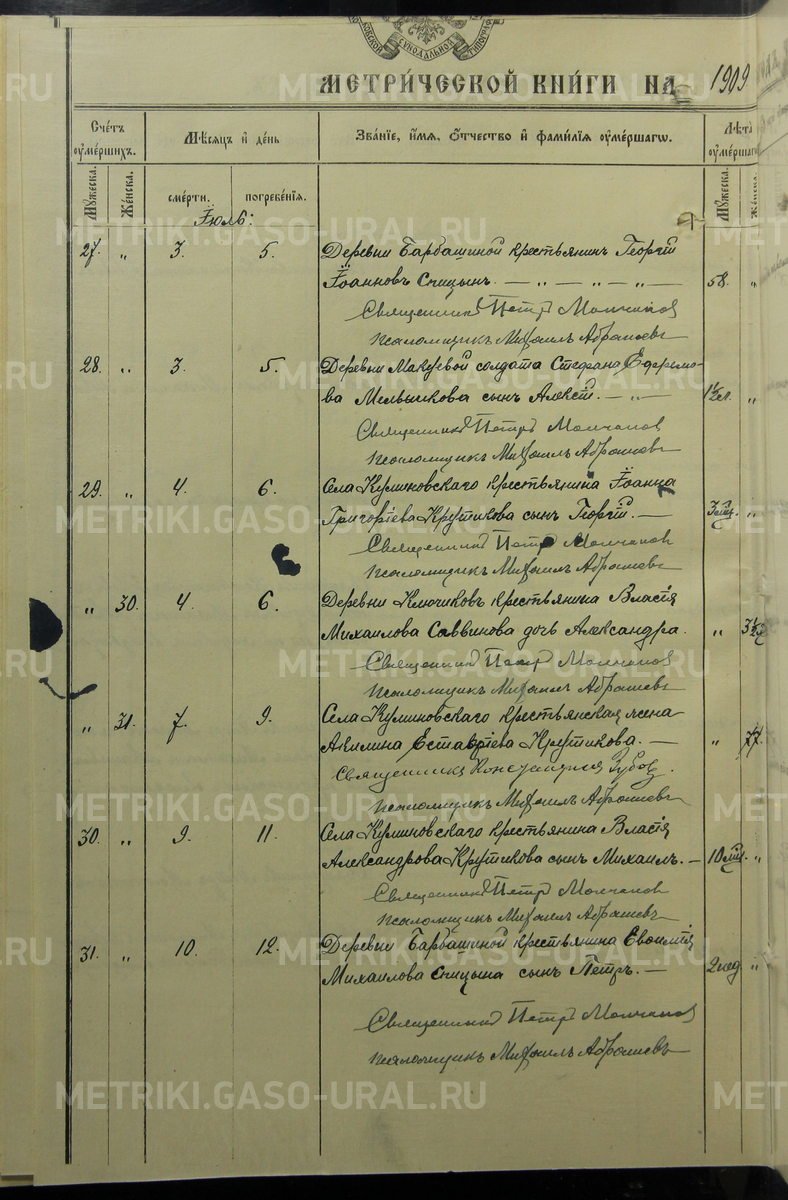 МЕТРИ́ЧЕСКОЙ КНИ́ГИ НА 1909
Счетъ ᲂумершихъ.
Мѣсяцъ и день
Званіе, имя, ѻтчество и фамилія ᲂумершагѡ.
Лѣта ᲂумершаг
Мужеска.
Женска.
смерти.
погребенія.
Мужеска.
Женска.
Іюль:
27. „ 3. 5. Деревни Барбашиной крестьянинъ Георгій
Іоанновъ Спицынъ. — „ — „ — „ — 58. „
Священникъ Петръ Молчановъ
Псаломщикъ Михаилъ Абрашевъ
28. „ 3. 5. Деревни Макуевой солдата Стефана Ефремо-
ва Мельникова сынъ Алексій. — „ — 1½ л. „
Священникъ Петръ Молчановъ
Псаломщикъ Михаилъ Абрашевъ
29. „ 4. 6. Села Куминовскаго крестьянина Іоанна
Григоріева Крутикова сынъ Георгій. — 3 мѣс. „
Священникъ Петръ Молчановъ
Псаломщикъ Михаилъ Абрашевъ
„ 30. 4. 6. Деревни Ключиковъ крестьянина Власія
Михаилова Саввинова дочь Александра. „ 3½
Священникъ Петръ Молчановъ
Псаломщикъ Михаилъ Абрашевъ
„ 31. 7. 9. Села Куминовскаго крестьянская жена
Акилина Евставіева Крутикова. — „ 77.
Священникъ Константинъ Зубовъ.
Псаломщикъ Михаилъ Абрашевъ
30. „ 9. 11. Села Куминовскаго крестьянина Власія
Александрова Крутикова сынъ Михаилъ. — 10 мѣс. „
Священникъ Петръ Молчановъ
Псаломщикъ Михаилъ Абрашевъ
31. „ 10. 12. Деревни Барбашиной крестьянина Евѳимія
Михаилова Спицына сынъ Петръ. — 2 нед „
Священникъ Петръ Молчановъ
Псаломщикъ Михаилъ Абрашевъ
METRIKI.GASO-URAL.RU